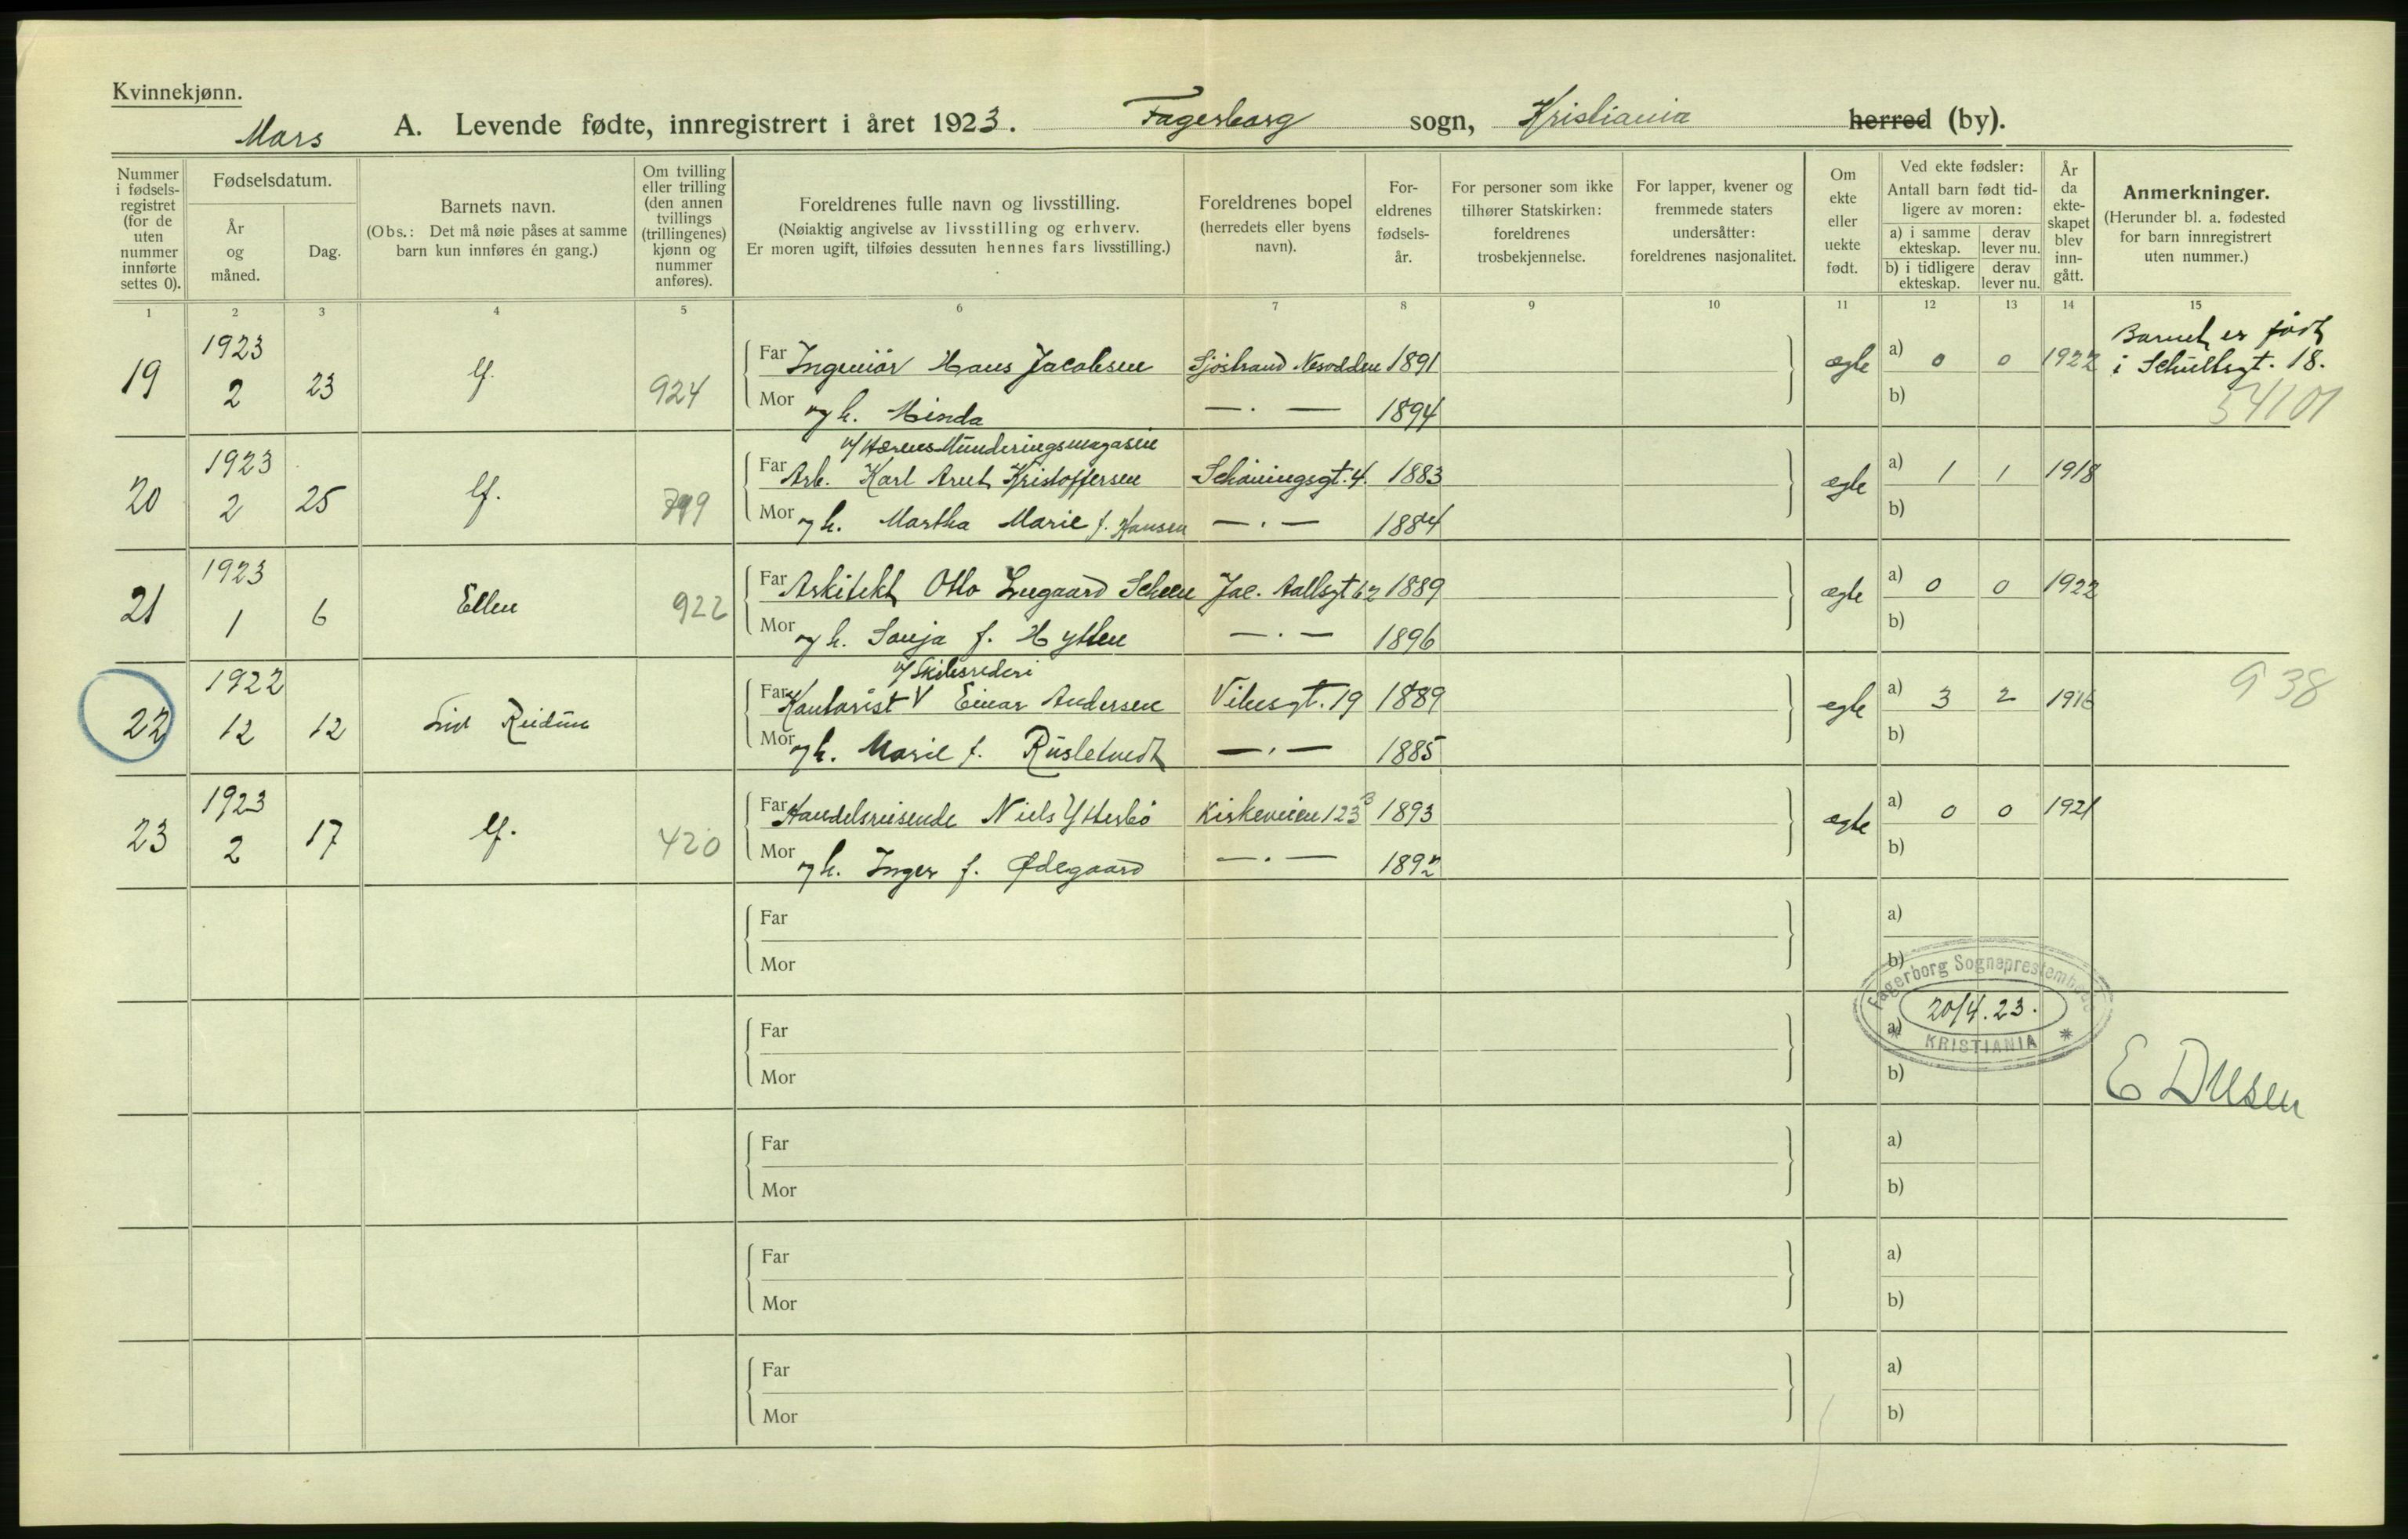 Kvinnekjønn.
Mars A. Levende fødte, innregistrert i året 1923. Fagerborg sogn, Kristiania herred (by).
Nummer i fødsels-registret (for de uten nummer innførte settes 0).
Fødselsdatum.
År og måned.
Dag.
Barnets navn.
(Obs.: Det må nøie påses at samme barn kun innføres én gang.)
Om tvilling eller trilling (den annen tvillings (trillingenes) kjønn og nummer anføres).
Foreldrenes fulle navn og livsstilling.
(Nøiaktig angivelse av livsstilling og erhverv.
Er moren ugift, tilføies dessuten hennes fars livsstilling.)
Foreldrenes bopel (herredets eller byens navn).
For-eldrenes fødsels-år.
For personer som ikke tilhører Statskirken: foreldrenes trosbekjennelse.
For lapper, kvener og fremmede staters undersåtter: foreldrenes nasjonalitet.
Om ekte eller uekte født.
Ved ekte fødsler:
Antall barn født tid-ligere av moren:
a) i samme ekteskap. derav lever nu.
b) i tidligere ekteskap. derav lever nu.
År da ekte-skapet blev inn-gått.
Anmerkninger.
(Herunder bl. a. fødested for barn innregistrert uten nummer.)
1 2 3 4 5 6 7 8 9 10 11 12 13 14 15
19 1923 2 23 lf. 924 Far Ingeniør Hans Jacobsen Sjøstrand Nesodden 1891 ægte a) 0 0 1922 Barnet er født i Schultsgt. 18.
Mor og h. Minda — . — 1894 b) 54101
v/ Hærens Munderingsmagasin
20 1923 2 25 lf. 799 Far Arb. Karl Arnt Kristoffersen Schøningsgt. 4. 1883 ægte a) 1 1 1918
Mor og h. Martha Marie f. Hansen — . — 1884 b)
21 1923 1 6 Ellen 922 Far Arkitekt Otto Scheen Jac. Aallsgt 62 1889 ægte a) 0 0 1922
Mor og h. Sonja f. Hytten — . — 1896 b)
v/ Skibsrederi
22 1922 12 12 Liv Reidun Far Kontorist V Einar Andersen Vibesgt. 19 1889 egte a) 3 2 1916 938
Mor og h. Marie f. Rusletvedt — . — 1885 b)
23 1923 2 17 lf. 420 Far Handelsreisende Niels Ytterbø Kirkeveien 123 B 1893 ægte a) 0 0 1921
Mor og h. Inger f. Ødegaard — . — 1892 b)
Far a)
Mor b)
Fagerborg Sogneprestembede
20/4.23.
KRISTIANIA
Far a)
Mor b)
Far a)
Mor b)
Far a)
Mor b)
Far a)
Mor b)